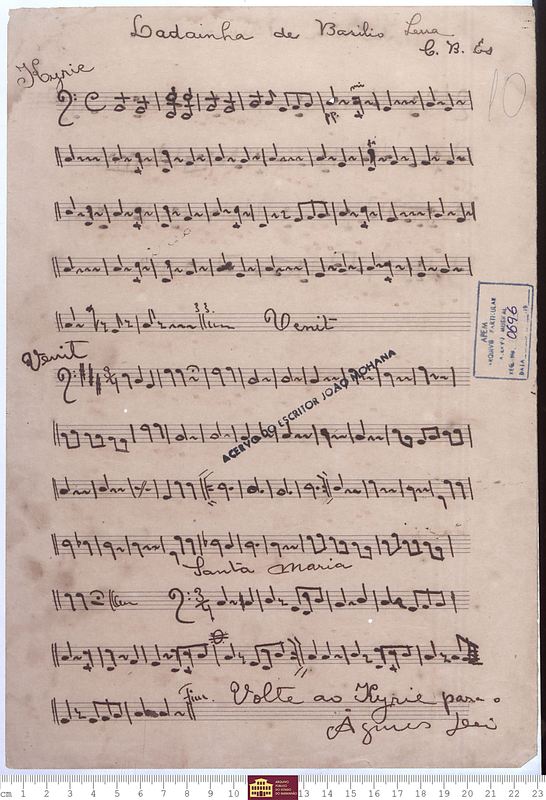 Ladainha de Basilio Serra
C. B. Es
Kyrie
10
mi
pp.
3 3
Venit
APEM
ARQUIVO PARTICULAR
REG. NO. 0696
DATA 19
Venit
ACERVO DO ESCRITOR JOÃO MOHANA
Santa Maria
Fim. Volte ao Kyrie para o
Agnus Dei
cm 1 2 3 4 5 6 7 8 9 10 13 14 15 16 17 18 19 20 21 22 23